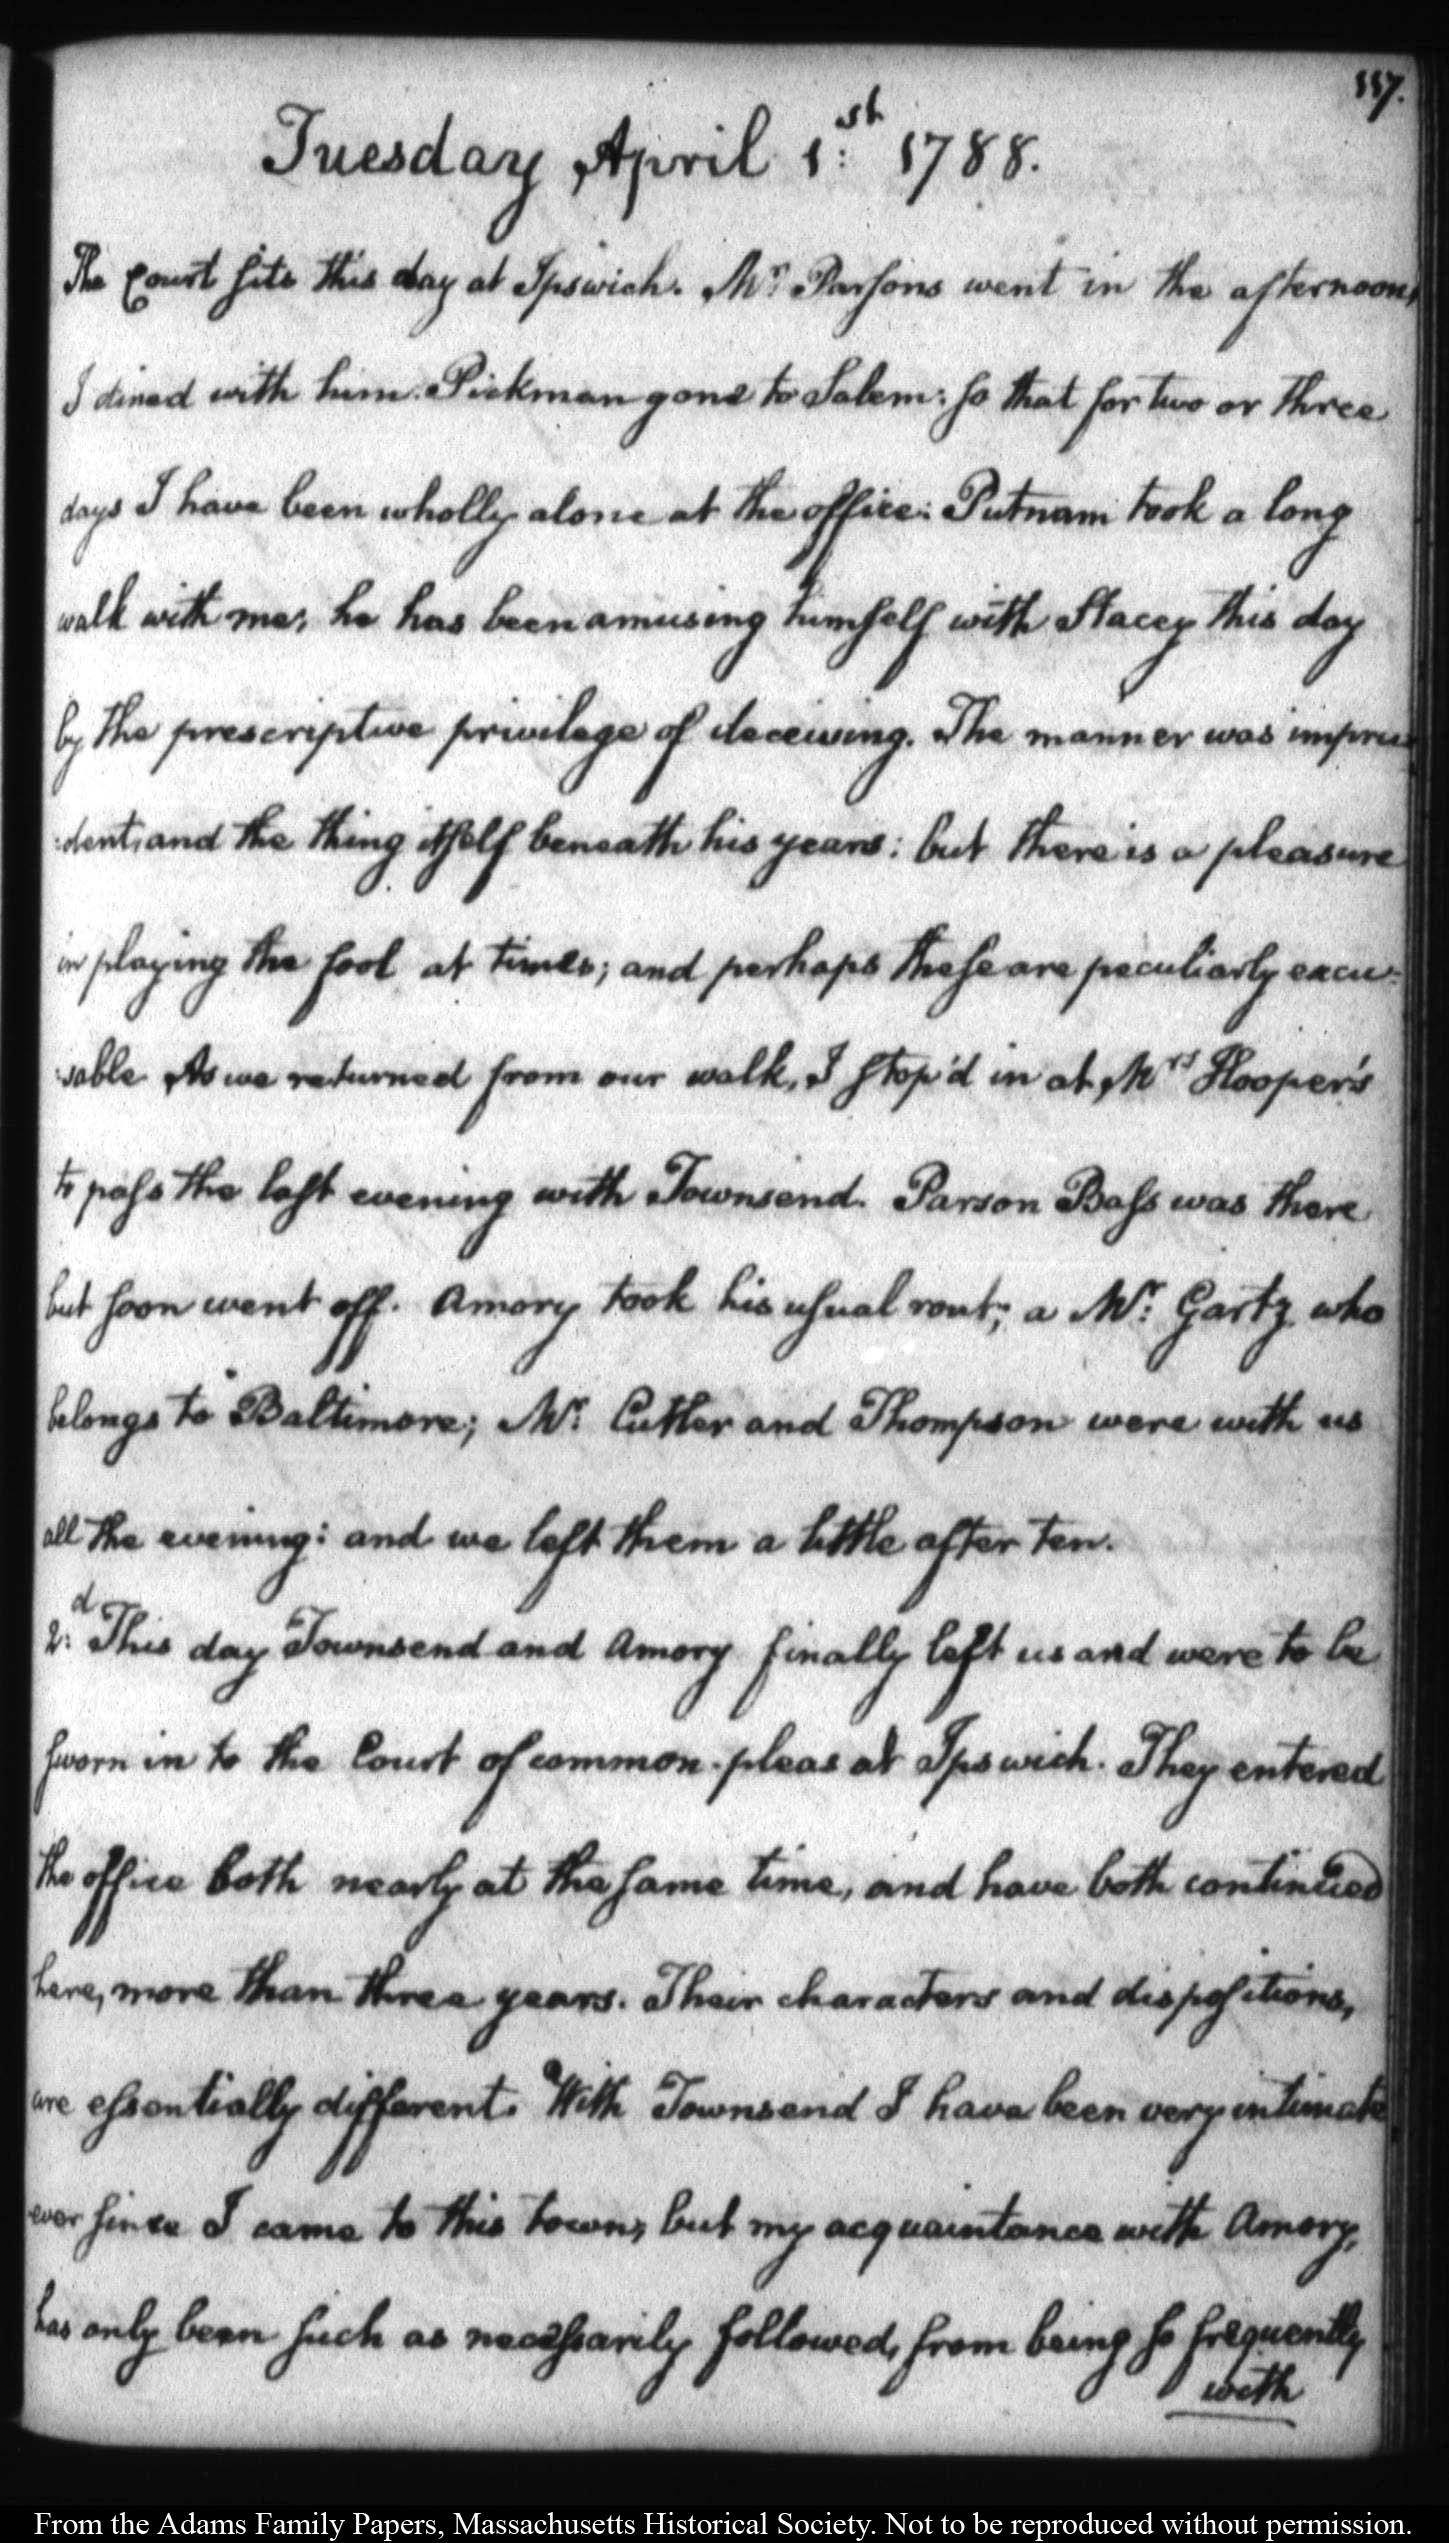 117.
Tuesday April 1:st 1788.
The Court sits this day at Ipswich. Mr: Parsons went in the afternoon,
I dined with him. Pickman gone to Salem: so that for two or three
days I have been wholly alone at the office: Putnam took a long
walk with me; he has been amusing himself with Stacey this day
by the prescriptive privilege of deceiving. The manner was impru
:dent, and the thing itself beneath his years: but there is a pleasure
in playing the fool at times; and perhaps these are peculiarly excu:
:sable. As we returned from our walk, I stop'd in at Mrs Hooper's
to pass the last evening with Townsend. Parson Bass was there
but soon went off. Amory took his usual rout; a Mr: Gartz who
belongs to Baltimore; Mr: Cutler and Thompson were with us
all the evening: and we left them a little after ten.
2:d This day Townsend and Amory finally left us and were to be
sworn in to the Court of common pleas at Ipswich. They entered
the office both nearly at the same time, and have both continued
here, more than three years. Their characters and dispositions,
are essentially different. With Townsend I have been very intimate
ever since I came to this town; but my acquaintance with Amory,
has only been such as necessarily followed, from being so frequently
with
From the Adams Family Papers, Massachusetts Historical Society. Not to be reproduced without permission.